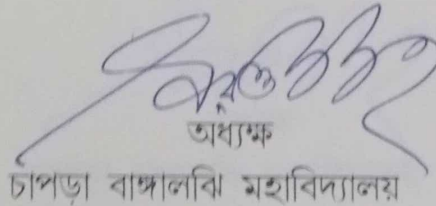 অধ্যক্ষ
চাপড়া বাঙ্গালঝি মহাবিদ্যালয়